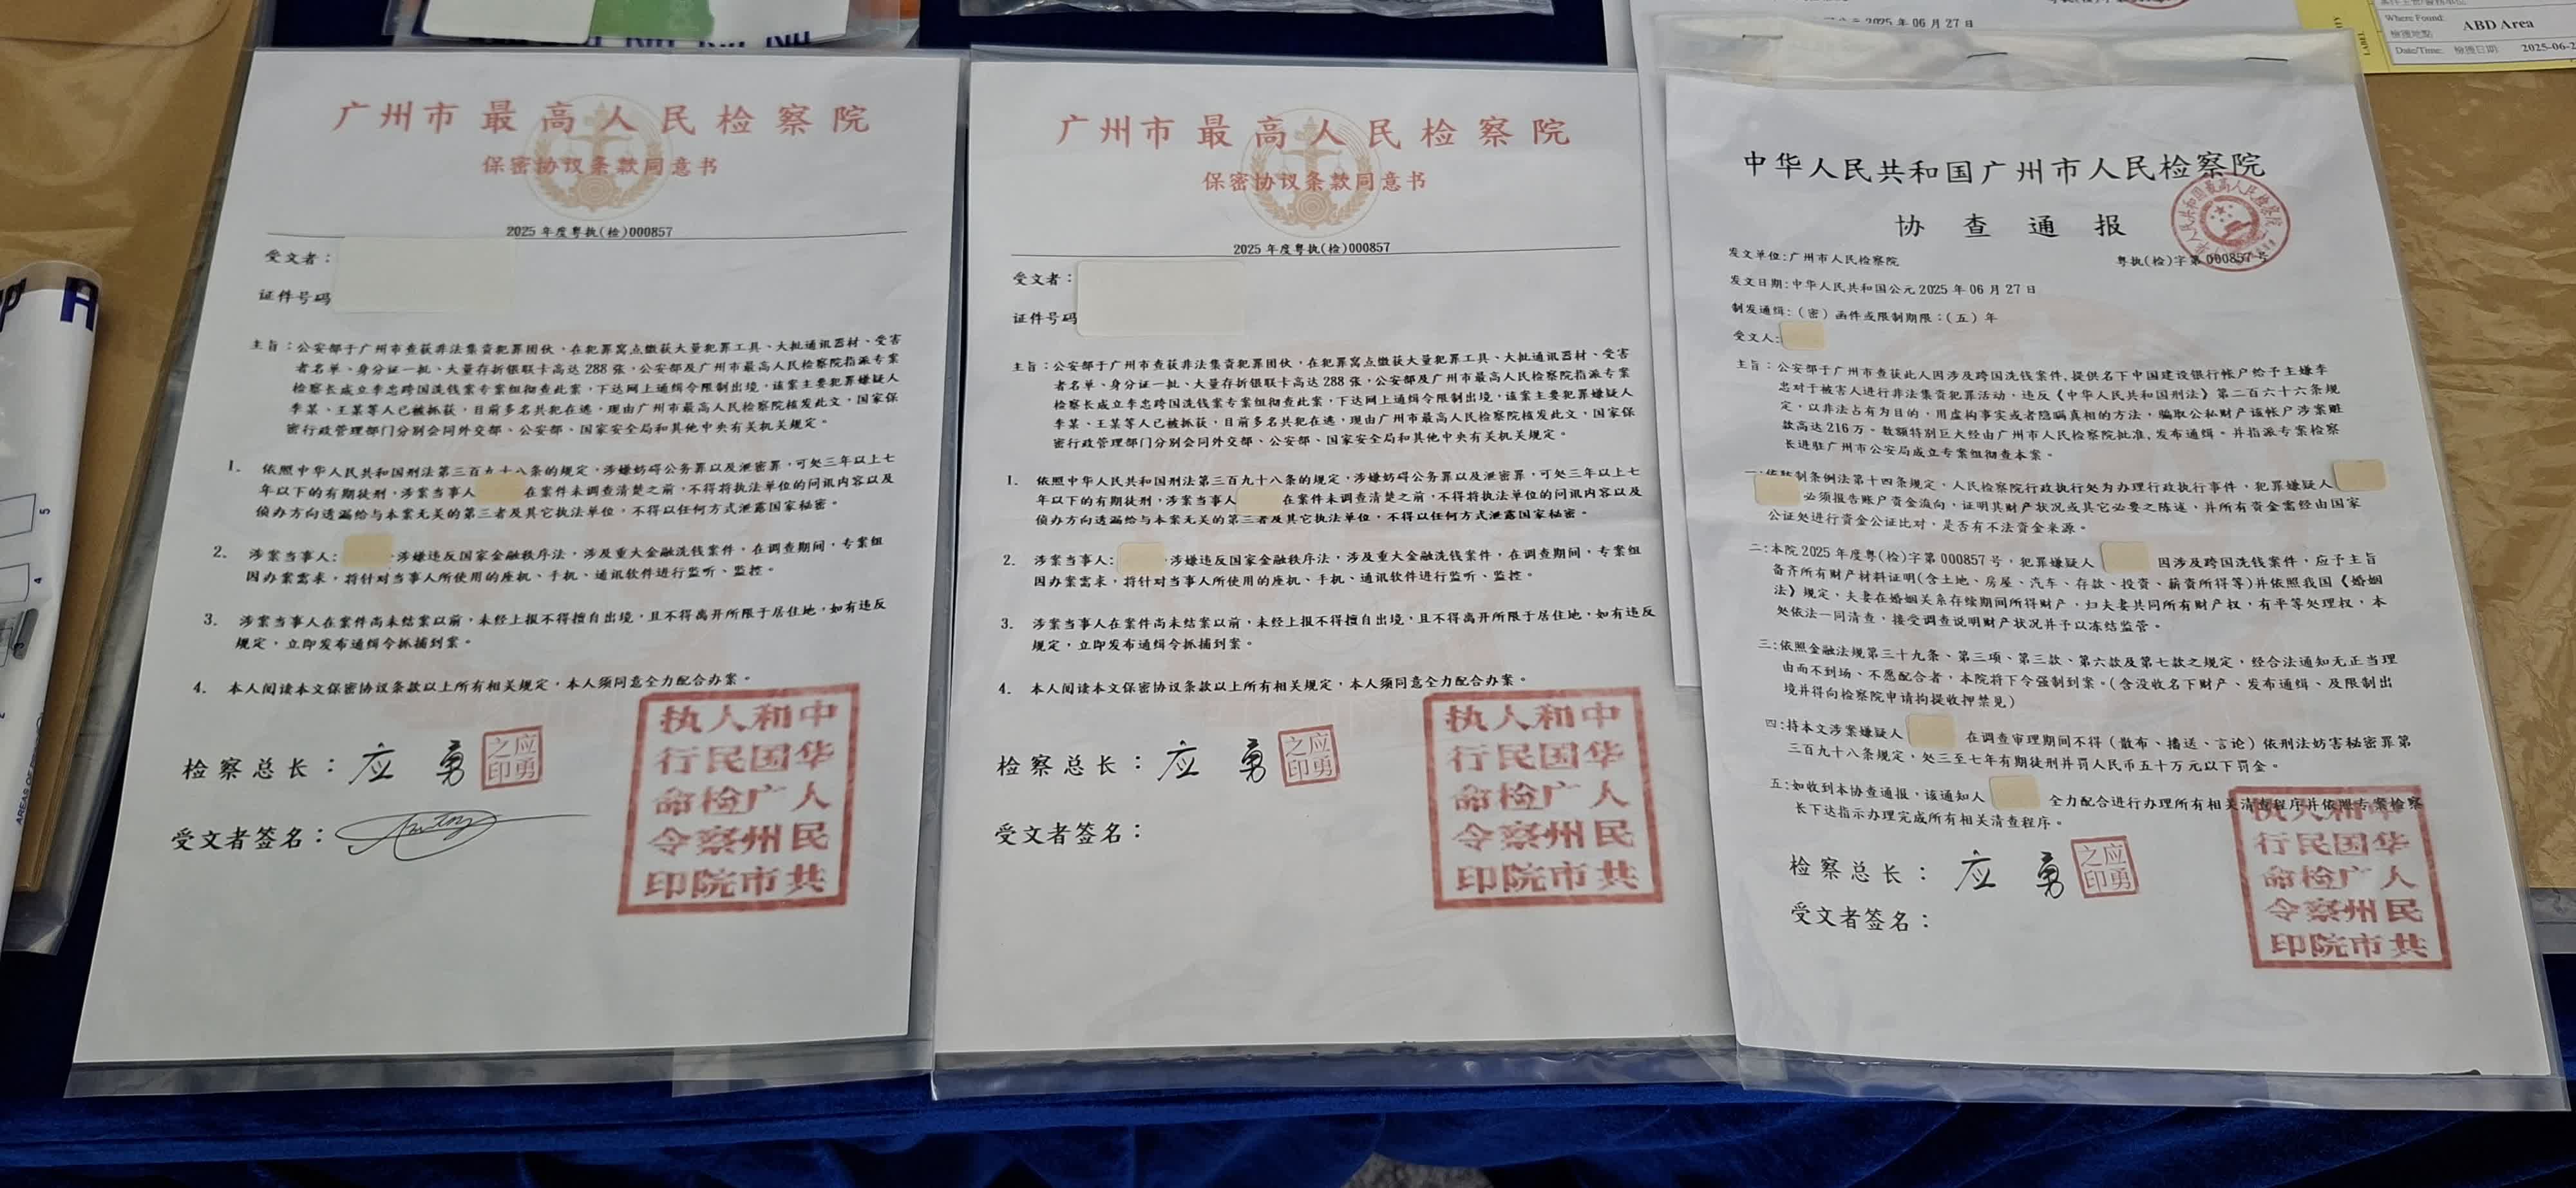 广州市最高人民检察院
保密协议条款同意书
2025年度粤执(检)000857
受文者：
证件号码
主旨：公安部于广州市查获非法集资犯罪团伙，在犯罪窝点缴获大量犯罪工具、大批通讯器材、受害
者名单、身分证一批、大量存折银联卡高达288张，公安部及广州市最高人民检察院指派专案
检察长成立李忠跨国洗钱案专案组彻查此案，下达网上通缉令限制出境，该案主要犯罪嫌疑人
李某、王某等人已被抓获，目前多名共犯在逃，现由广州市最高人民检察院核发此文，国家保
密行政管理部门分别会同外交部、公安部、国家安全局和其他中央有关机关规定。
1. 依照中华人民共和国刑法第三百九十八条的规定，涉嫌妨碍公务罪以及泄密罪，可处三年以上七
年以下的有期徒刑，涉案当事人 在案件未调查清楚之前，不得将执法单位的问讯内容以及
侦办方向透漏给与本案无关的第三者及其它执法单位，不得以任何方式泄露国家秘密。
2. 涉案当事人: 涉嫌违反国家金融秩序法，涉及重大金融洗钱案件，在调查期间，专案组
因办案需求，将针对当事人所使用的座机、手机、通讯软件进行监听、监控。
3. 涉案当事人在案件尚未结案以前，未经上报不得擅自出境，且不得离开所限于居住地，如有违反
规定，立即发布通缉令抓捕到案。
4. 本人阅读本文保密协议条款以上所有相关规定，本人须同意全力配合办案。
检察总长：应 勇
应勇之印
受文者签名：
中华人民共
和国广州市
人民检察院
执行命令印
广州市最高人民检察院
保密协议条款同意书
2025年度粤执(检)000857
受文者：
证件号码
主旨：公安部于广州市查获非法集资犯罪团伙，在犯罪窝点缴获大量犯罪工具、大批通讯器材、受害
者名单、身分证一批、大量存折银联卡高达288张，公安部及广州市最高人民检察院指派专案
检察长成立李忠跨国洗钱案专案组彻查此案，下达网上通缉令限制出境，该案主要犯罪嫌疑人
李某、王某等人已被抓获，目前多名共犯在逃，现由广州市最高人民检察院核发此文，国家保
密行政管理部门分别会同外交部、公安部、国家安全局和其他中央有关机关规定。
1. 依照中华人民共和国刑法第三百九十八条的规定，涉嫌妨碍公务罪以及泄密罪，可处三年以上七
年以下的有期徒刑，涉案当事人 在案件未调查清楚之前，不得将执法单位的问讯内容以及
侦办方向透漏给与本案无关的第三者及其它执法单位，不得以任何方式泄露国家秘密。
2. 涉案当事人: 涉嫌违反国家金融秩序法，涉及重大金融洗钱案件，在调查期间，专案组
因办案需求，将针对当事人所使用的座机、手机、通讯软件进行监听、监控。
3. 涉案当事人在案件尚未结案以前，未经上报不得擅自出境，且不得离开所限于居住地，如有违反
规定，立即发布通缉令抓捕到案。
4. 本人阅读本文保密协议条款以上所有相关规定，本人须同意全力配合办案。
检察总长：应 勇
应勇之印
受文者签名：
中华人民共
和国广州市
人民检察院
执行命令印
2025年06月27日
中华人民共和国广州市人民检察院
协查通报
中华人民共和国最高人民检察院
发文单位:广州市人民检察院
粤执(检)字第000857号
发文日期:中华人民共和国公元2025年06月27日
制发通缉:（密）函件或限制期限：(五）年
受文人:
主旨：公安部于广州市查获此人因涉及跨国洗钱案件,提供名下中国建设银行帐户给予主嫌李
忠对于被害人进行非法集资犯罪活动，违反《中华人民共和国刑法》第二百六十六条规
定，以非法占有为目的，用虚构事实或者隐瞒真相的方法，骗取公私财产该帐户涉案赃
款高达216万。数额特别巨大经由广州市人民检察院批准,发布通缉。并指派专案检察
长进驻广州市公安局成立专案组彻查本案。
制条例法第十四条规定，人民检察院行政执行处为办理行政执行事件，犯罪嫌疑人
必须报告账户资金流向，证明其财产状况或其它必要之陈述，并所有资金需经由国家
公证处进行资金公证比对，是否有不法资金来源。
二:本院2025年度粤(检)字第000857号，犯罪嫌疑人 因涉及跨国洗钱案件，应予主旨
备齐所有财产材料证明(含土地、房屋、汽车、存款、投资、薪资所得等)并依照我国《婚姻
法》规定，夫妻在婚姻关系存续期间所得财产，归夫妻共同所有财产权，有平等处理权，本
处依法一同清查，接受调查说明财产状况并予以冻结监管。
三:依照金融法规第三十九条、第三项、第三款、第六款及第七款之规定，经合法通知无正当理
由而不到场、不愿配合者，本院将下令强制到案。(含没收名下财产、发布通缉、及限制出
境并得向检察院申请拘提收押禁见)
四:持本文涉案嫌疑人 在调查审理期间不得（散布、播送、言论）依刑法妨害秘密罪第
三百九十八条规定，处三至七年有期徒刑并罚人民币五十万元以下罚金。
五:如收到本协查通报，该通知人 全力配合进行办理所有相关清查程序并依照专案检察
长下达指示办理完成所有相关清查程序。
检察总长：应 勇
应勇之印
受文者签名：
中华人民共
和国广州市
人民检察院
执行命令印
Where Found: ABD Area
檢獲地點
Date/Time: 檢獲日期 2025-06-2
LABEL